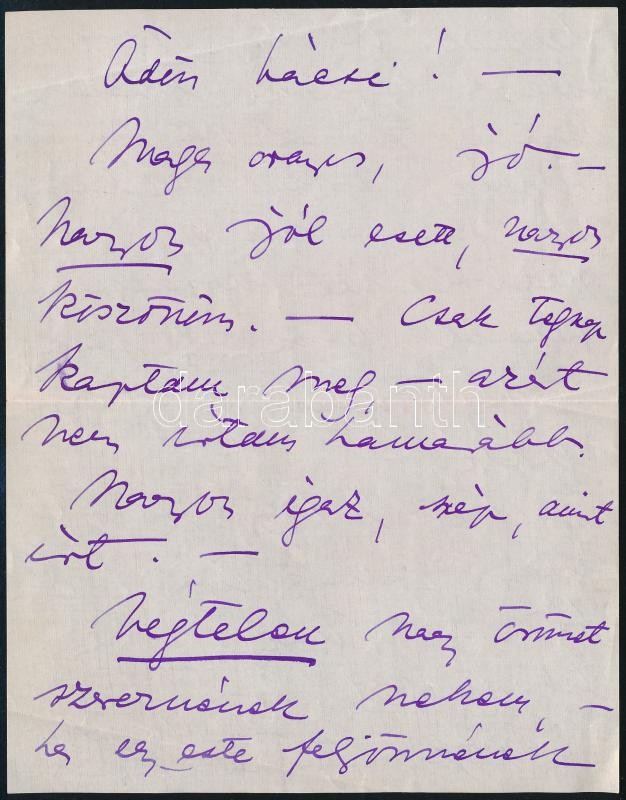 Ödön bácsi! —
Maga aranyos, jó. —
Nagyon jól esett, nagyon
köszönöm. — Csak tegnap
kaptam meg — azért
nem írtam hamarább.
Nagyon igaz, szép, amit
írt. —
Végtelen nagy örömet
szereznének nekem, —
ha egy este feljönnének
darabanth